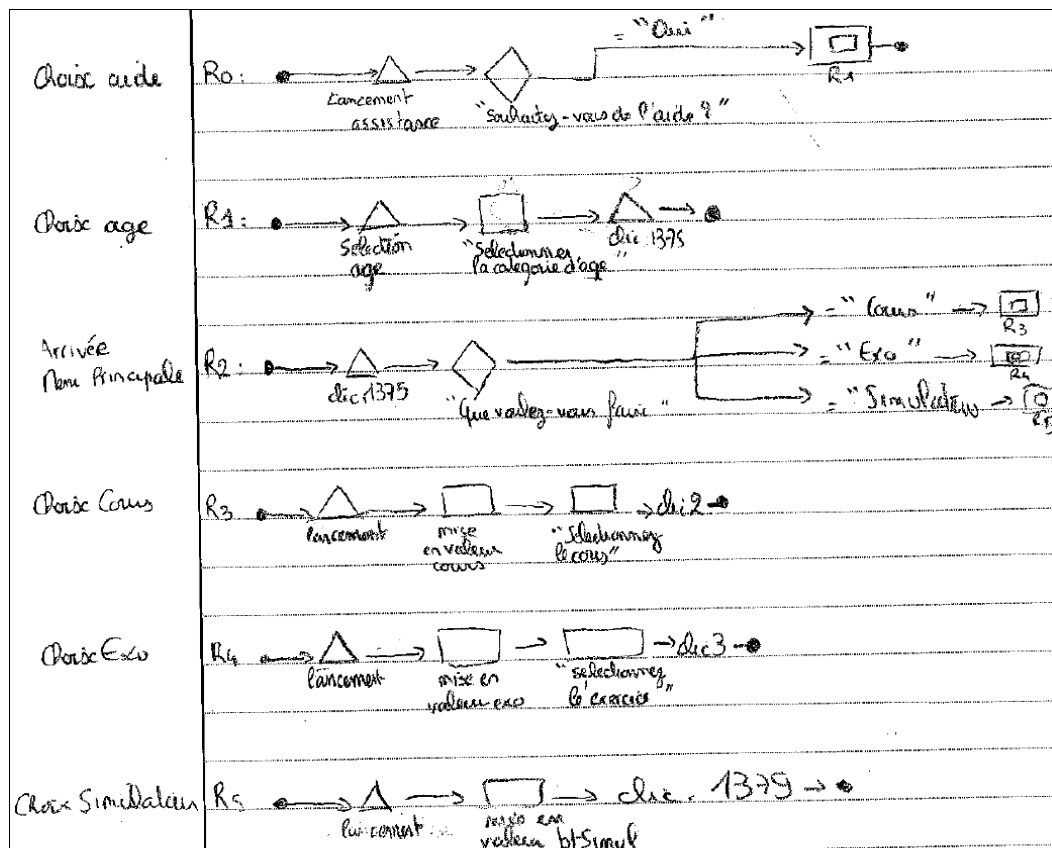 = "Oui"
Choix aide
R0 :
R1
Lancement
assistance
"Souhaitez-vous de l'aide ?"
Choix age
R1 :
Sélection
age
"Sélectionner
la catégorie d'age"
clic 1375
Arrivée
Menu Principale
R2 :
clic, 1375
"Que voulez-vous faire"
= "Cours"
R3
= "Exo"
R4
= "Simulation
R5
Choix Cours
R3
lancement
mise
en valeur
cours
"Sélectionnez
le cours"
clic 2
Choix Exo
R4
lancement
mise en
valeur exo
"selectionnez
l'exercice"
clic 3
Choix Simulateur
R5
lancement
mise en
valeur bt-Simul
clic. 1379